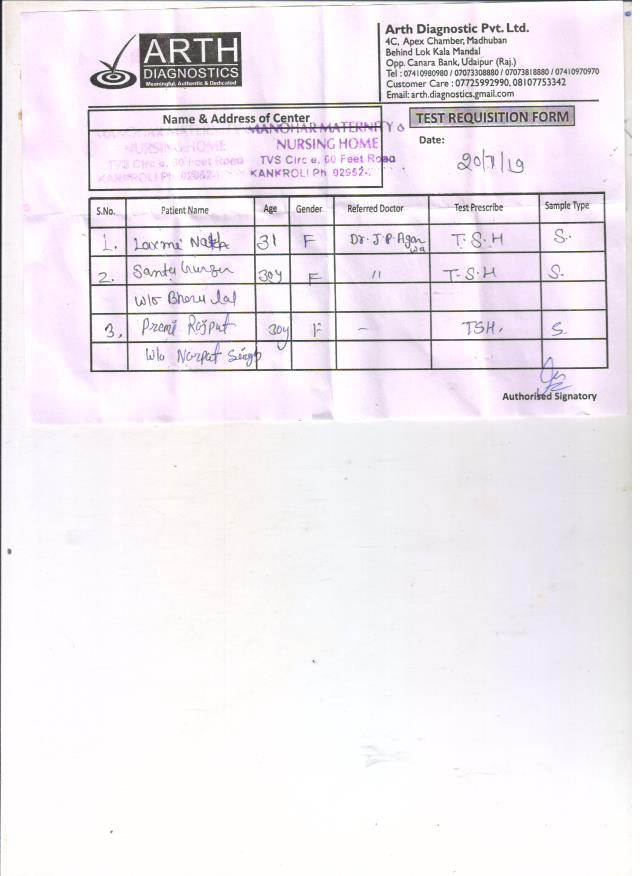 ARTH
DIAGNOSTICS
Meaningful, Authentic & Dedicated
Arth Diagnostic Pvt. Ltd.
4C, Apex Chamber, Madhuban
Behind Lok Kala Mandal
Opp. Canara Bank, Udaipur (Raj.)
Tel : 07410980980 / 07073308880 / 07073818880 / 07410970970
Customer Care : 07725992990, 08107753342
Email: arth.diagnostics.gmail.com
Name & Address of Center
TEST REQUISITION FORM
MANOHAR MATERNITY &
NURSING HOME
TVS Circ e, 60 Feet Road
KANKROLI Ph 02952-
NURSING HOME
TVS Circ e, 60 Feet Road
KANKROLI Ph. 02952-
Date: 20/7/19
S.No. Patient Name Age Gender Referred Doctor Test Prescribe Sample Type
1. Laxmi 31 F Dr. J.P. Agar wa T.S.H S.
2. 30y F 11 T.S.H S.
w/o Bheru lal
3. Premi Rajput 30y F - TSH. S
w/o Narpat Singh
Authorised Signatory